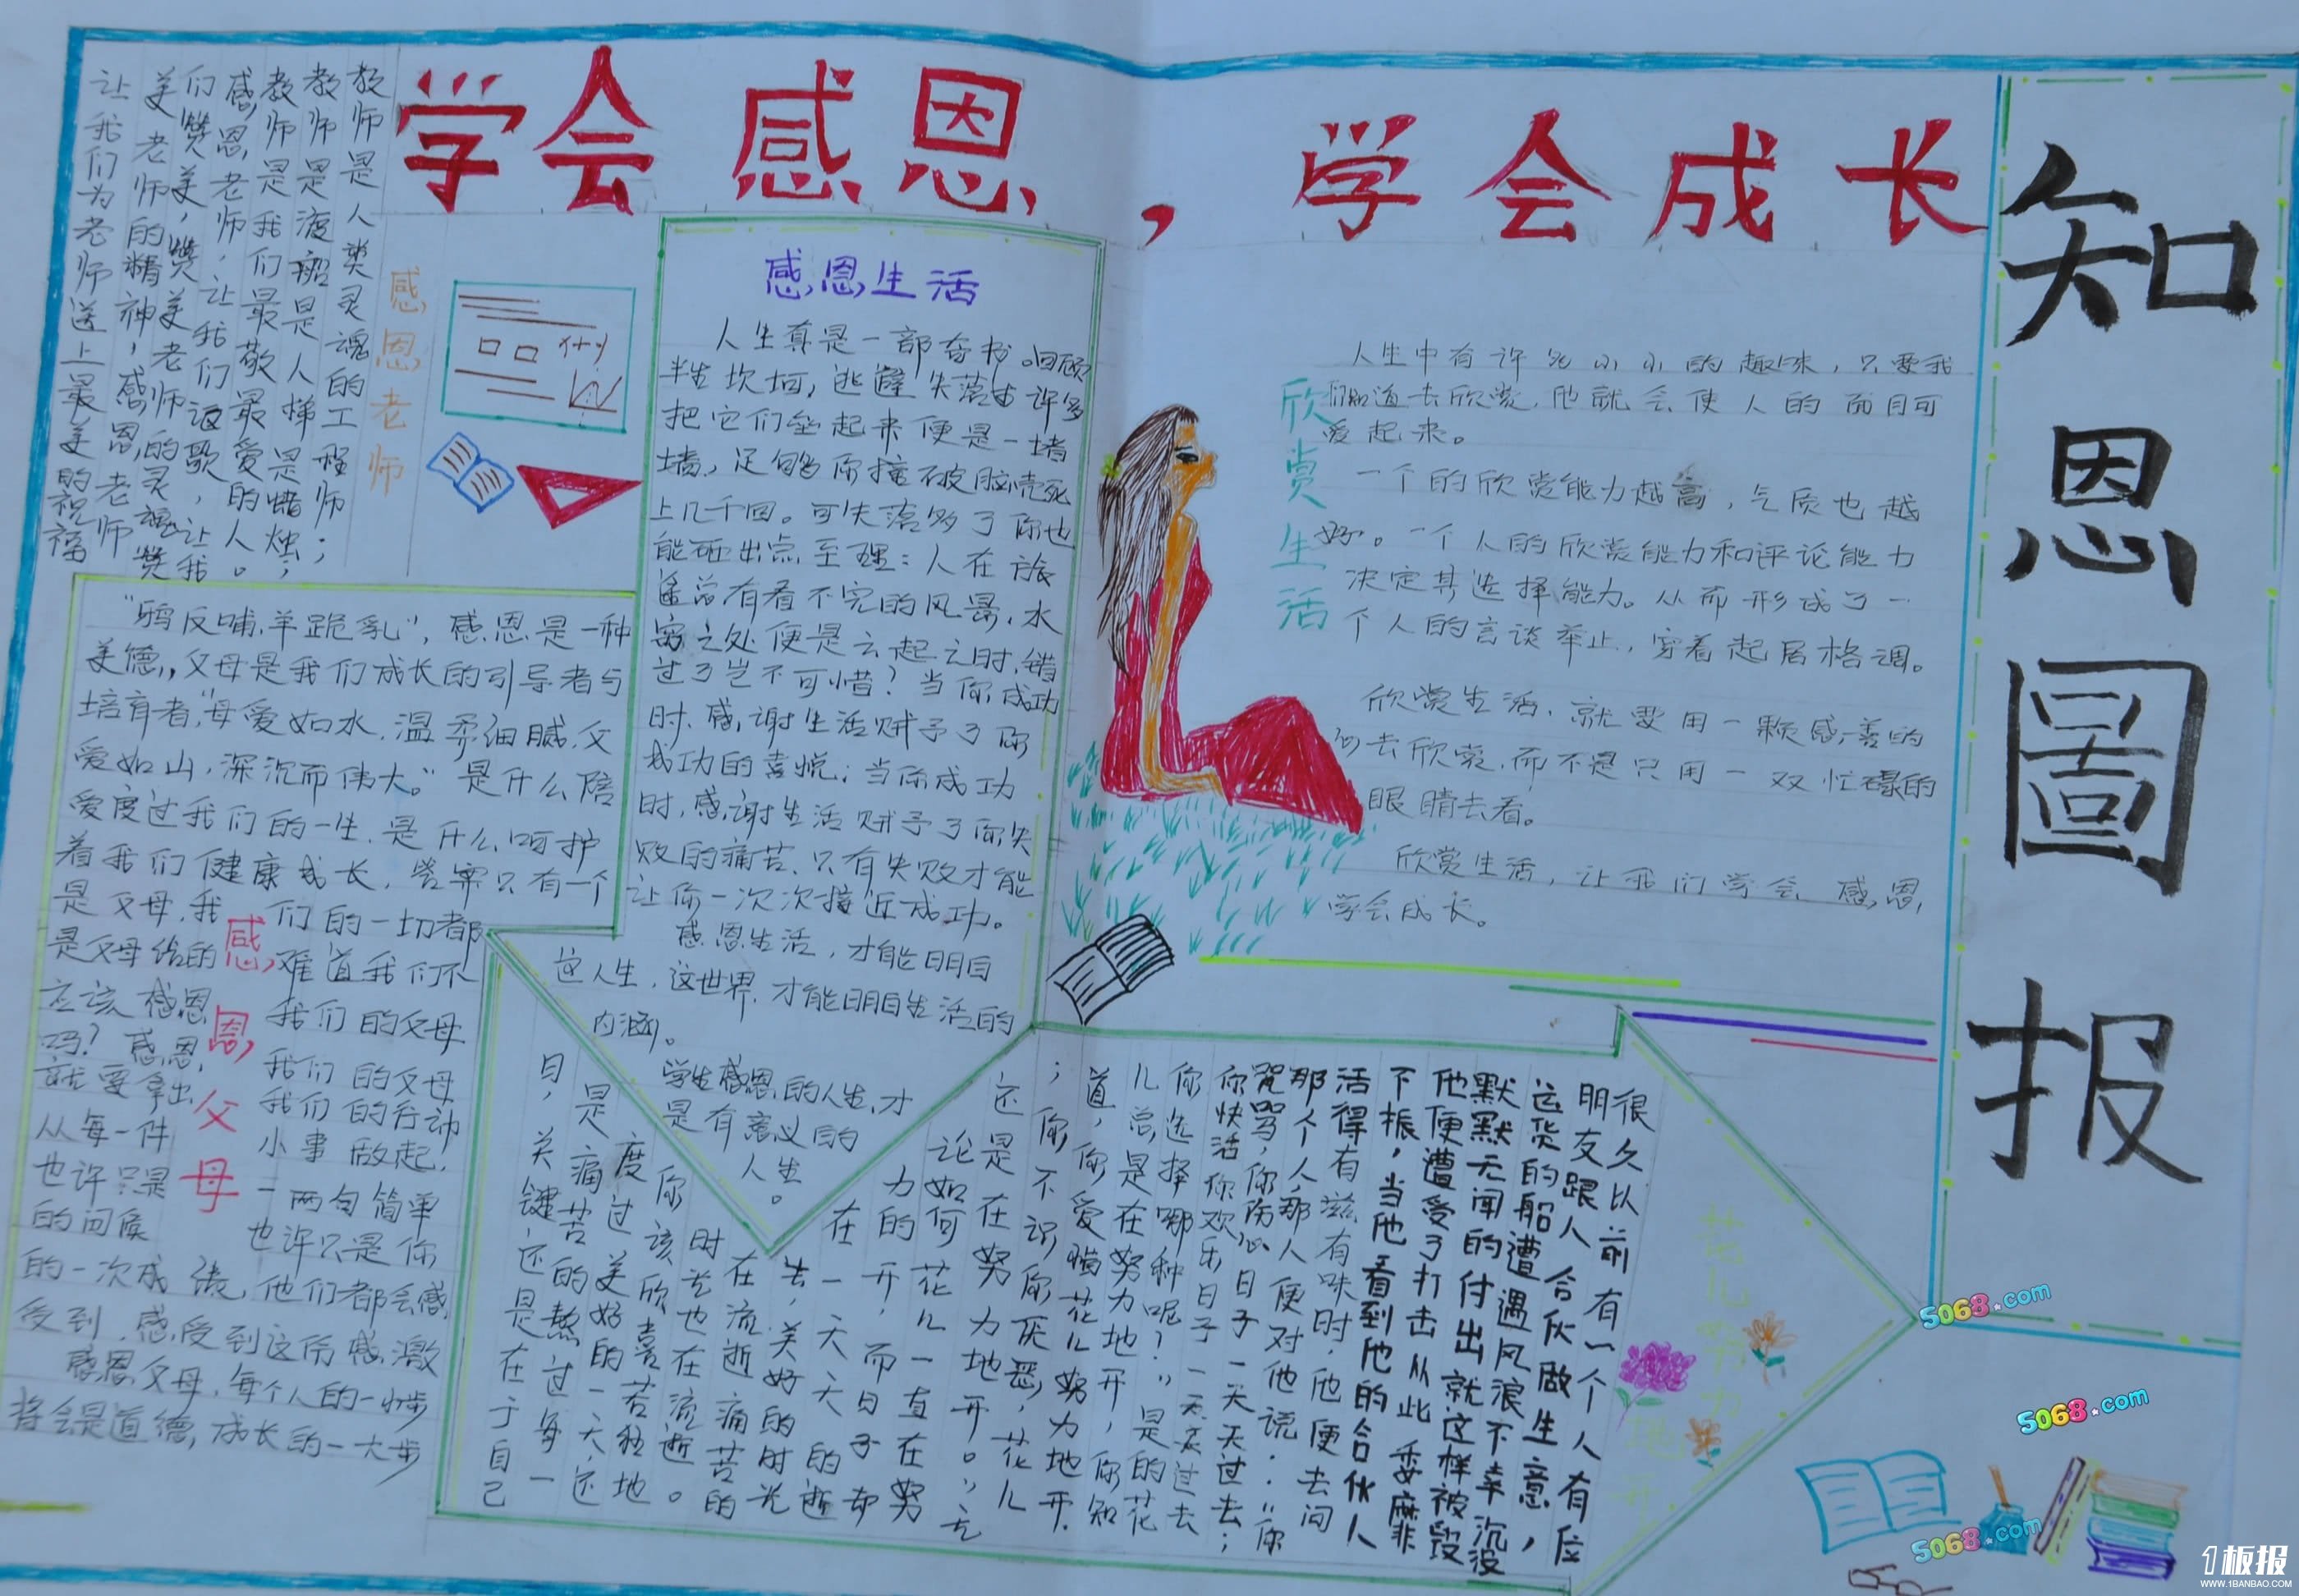 学会感恩，学会成长
知恩圖报
教师是人类灵魂的工程师；
教师是渡船是人梯是蜡烛；
教师是我们最敬最爱的人。
感恩老师，让我们返歌，让我
们赞美，赞美老师的灵魂赞
美老师的精神，感恩老师
让我们为老师送上最美的祝福
感恩老师
感恩生活
人生真是一部奇书。回顾
半生坎坷，逃避失落
许多
把它们垒起来便是一堵
墙，足够你撞破脑壳死
上几千回。可失落多了你也
能砸出点至理：人在旅
途总有看不完的风景，水
穷之处便是云起之时，错
过了岂不可惜？当你成功
时，感谢生活赋予了你
成功的喜悦；当你成功
时，感谢生活赋予了你失
败的痛苦，只有失败才能
让你一次次接近成功。
感恩生活，才能明白
这人生，这世界，才能明白生活的
内涵。
学生感恩的人生，才
是有意义的
人生。
欣赏生活
人生中有许多小小的趣味，只要我
们知道去欣赏，他就会使人的面目可
爱起来。
一个的欣赏能力越高，气质也越
好。一个人的欣赏能力和评论能力
决定其选择能力。从而形成了一
个人的言谈举止，穿着起居格调。
欣赏生活，就要用一颗感善的
心去欣赏，而不是只用一双忙碌的
眼睛去看。
欣赏生活，让我们学会感恩，
学会成长。
“鸦反哺，羊跪乳”，感恩是一种
美德，父母是我们成长的引导者与
培育者，“母爱如水，温柔细腻，父
爱如山，深沉而伟大。”是什么陪
爱度过我们的一生，是什么呵护
着我们健康成长，答案只有一个
是父母，我们的一切都
是父母给的，难道我们不
应该感恩我们的父母
吗？感恩我们的父母
就要拿出我们的行动
从每一件小事做起，
也许只是一两句简单
的问候也许只是你
的一次成绩，他们都会感
受到，感受到这份感激
感恩父母，每个人的一小步
将会是道德，成长的一大步
感恩父母
花儿努力地开
很久以前有一个人有位
朋友跟人合伙做生意，
运货的船遭遇风浪不幸沉没
默默无闻的付出就这样被毁
他便遭受了打击从此委靡
下振，当他看到他的合伙人
活得有滋有味时，他便去问
那个人，那人便对他说：“你
咒骂，你伤心日子一天天过去；
你快活你欢乐日子一天天过去
你选择哪种呢？”是的花
儿总是在努力地开，你知
道，你爱惜花儿努力地开
；你不识你厌恶，花儿
还是在努力地开。”无
论如何花儿一直在努
力的开，而日子却
在一天天的逝
去，美好的时光
在流逝痛苦的
时光也在流逝。
你该欣喜若狂地
度过美好的一天，还
是痛苦的熬过每一
日，关键还是在于自己
5068.com
5068.com
5068.com
1板报
WWW.1BANBAO.COM